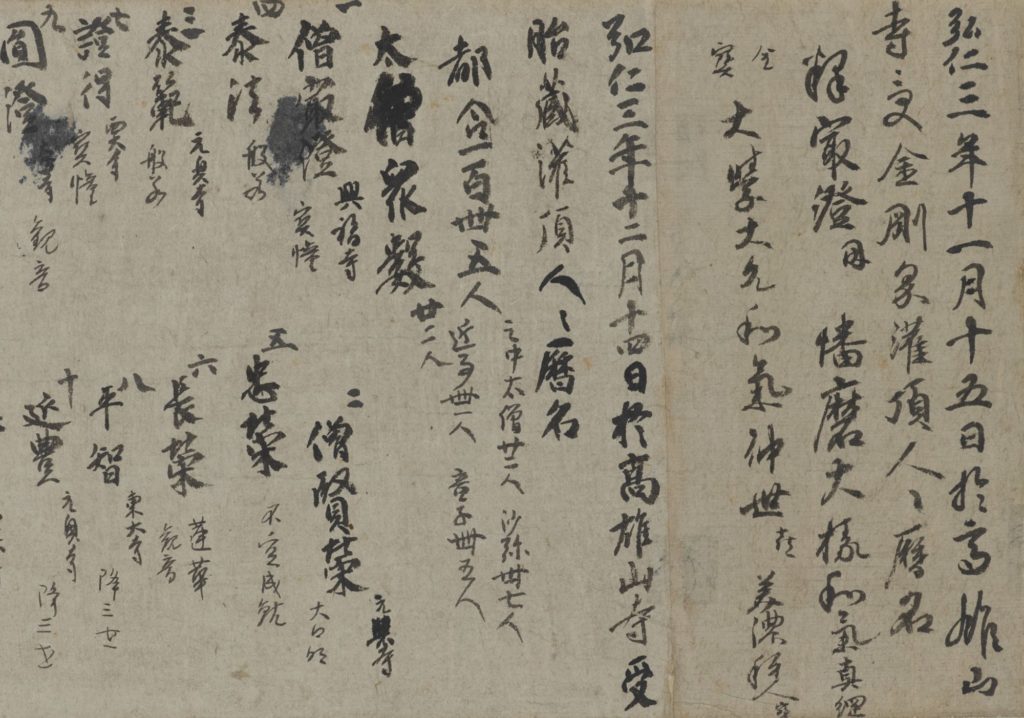 弘仁三年十一月十五日於高雄山
寺受金剛界灌頂人々暦名
釋寂澄因 幡磨大掾和氣真綱
金
寶
大學大允和氣仲世喜 美濃種人寶
弘仁三年十二月十四日於高雄山寺受
胎藏灌頂人々暦名
都合一百卌五人
之中太僧廿二人 沙弥卌七人
近事卌一人 童子卌五人
太僧衆數 廿二人
一
僧寂澄 興福寺 寶幢
二
僧賢榮 元興寺 大日
四
泰法 般若
五
忠榮 不空成就
三
泰範 元興寺 般若
六
長榮 蓮華 觀音
七
證得 寶幢
八
平智 東大寺 降三世
九
圓澄 觀音
十
近豊 元興寺 降三世